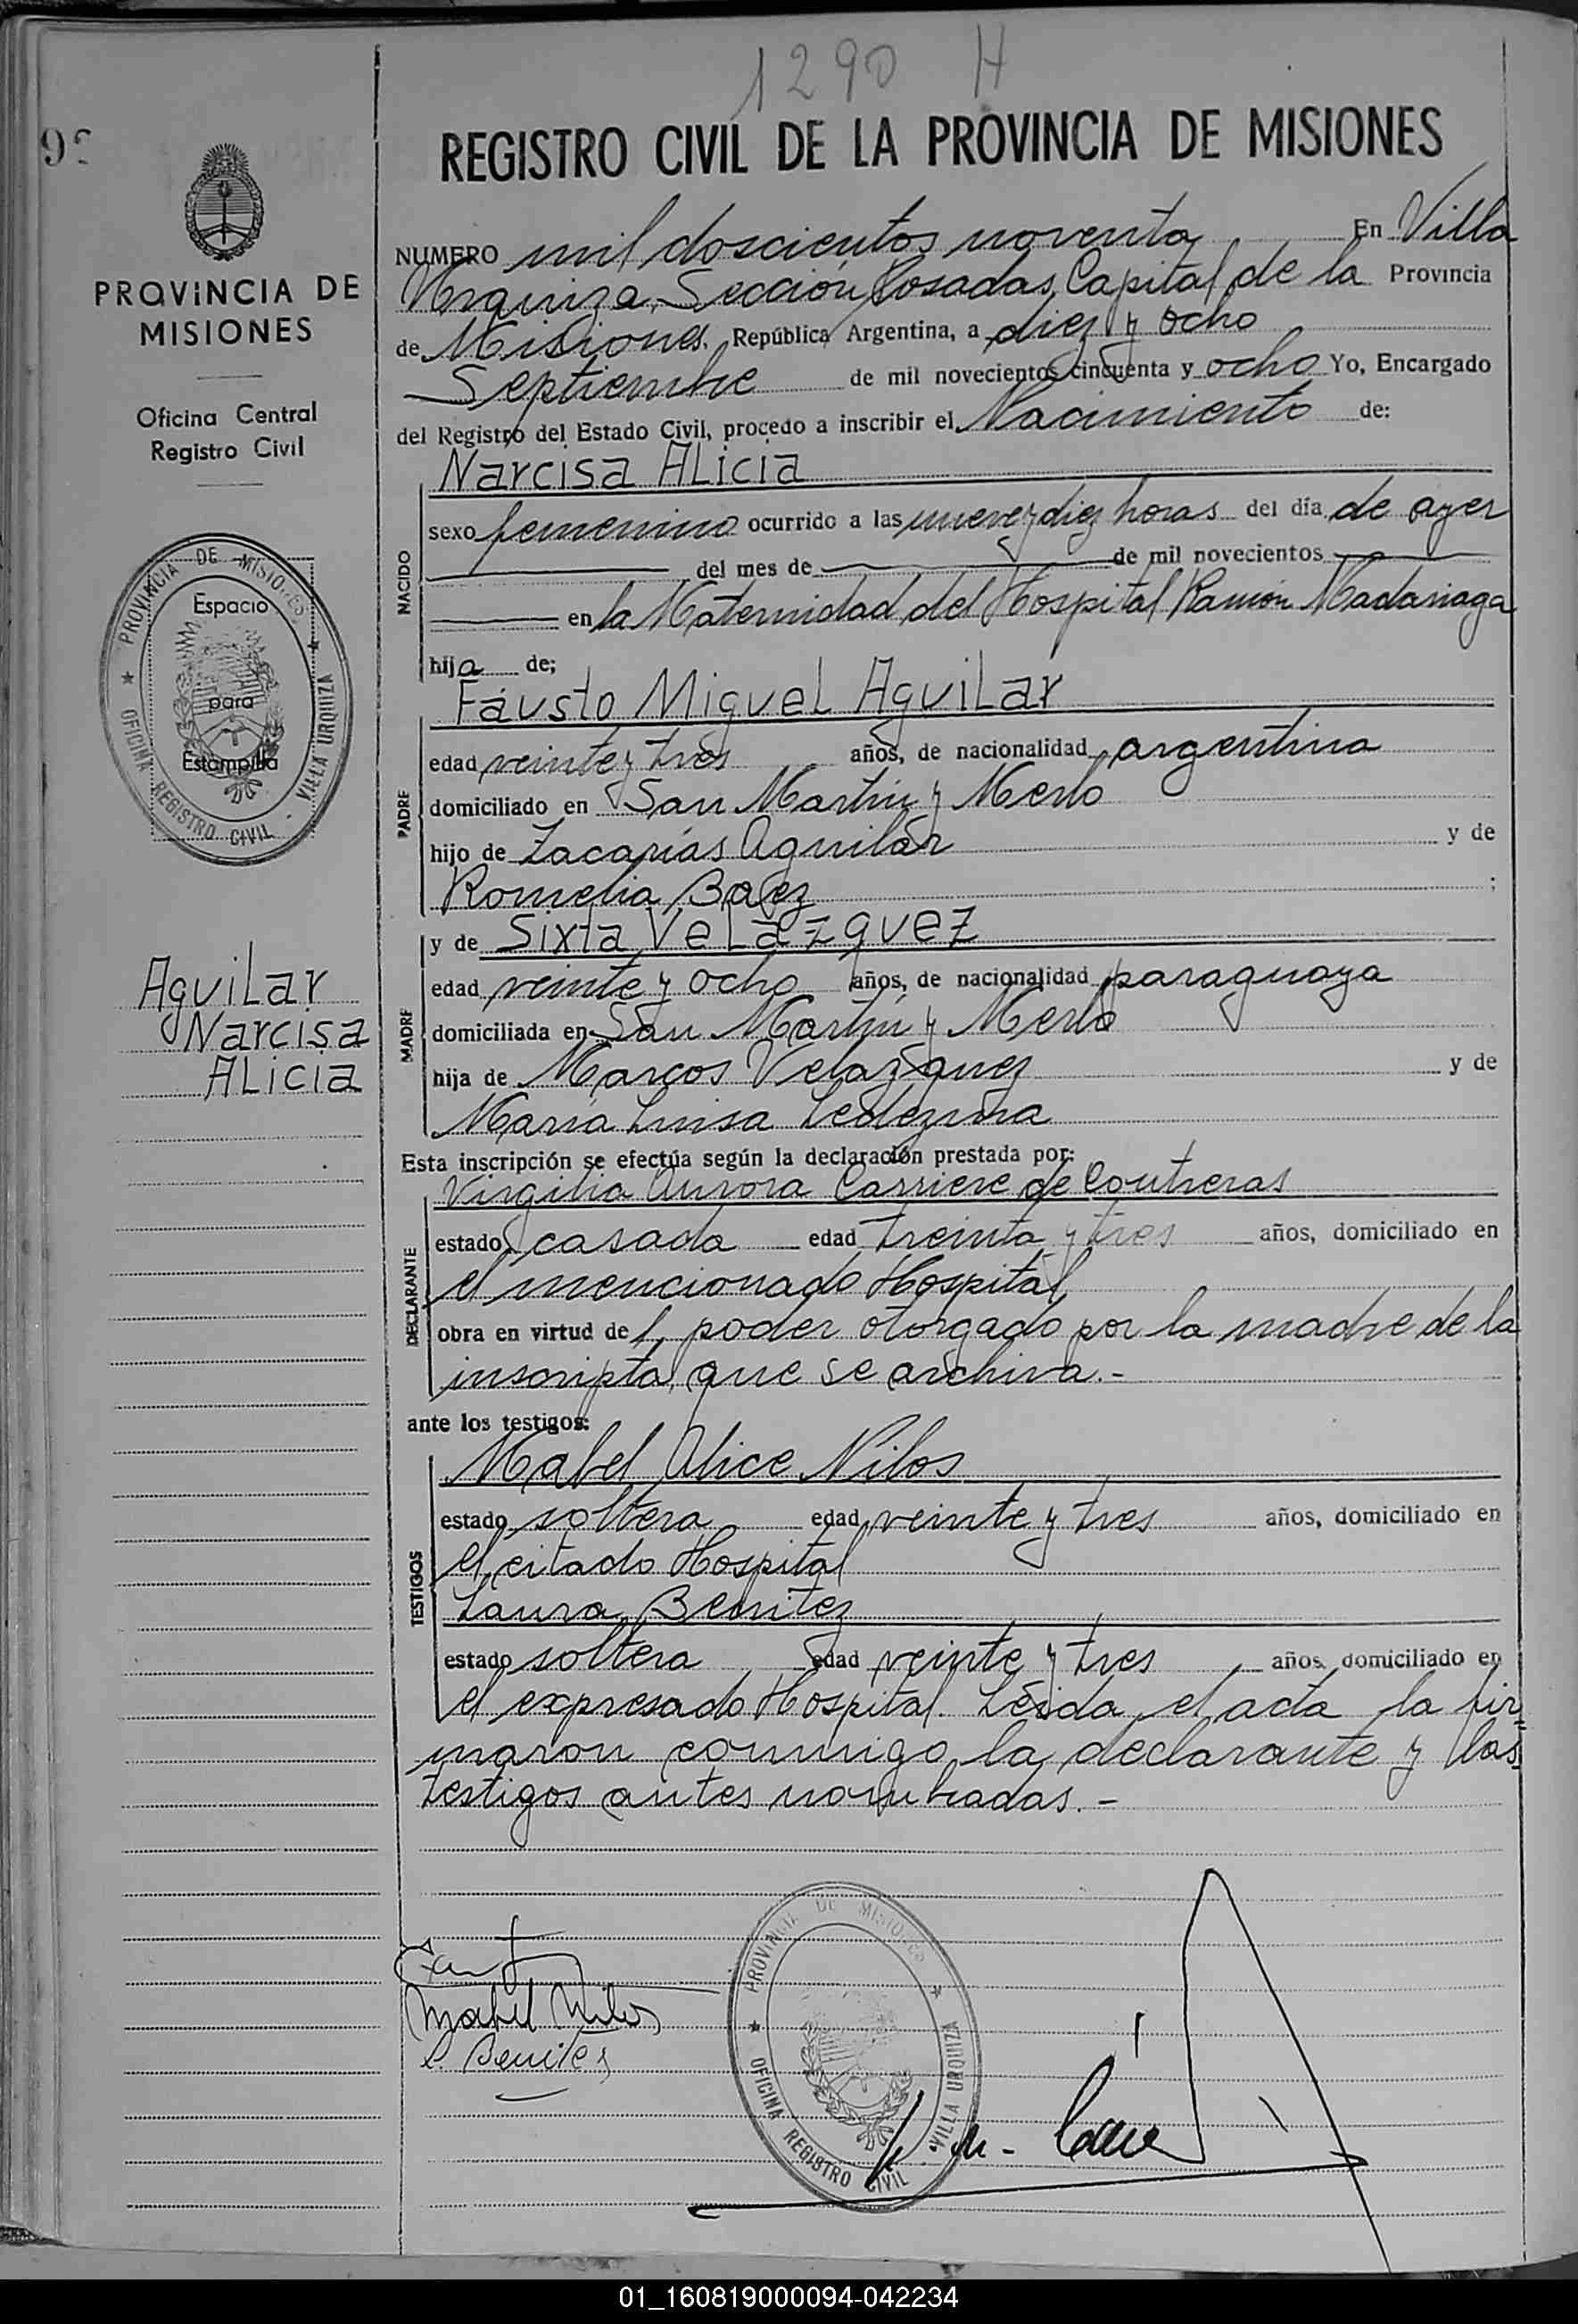 1290 H
REGISTRO CIVIL DE LA PROVINCIA DE MISIONES
PROVINCIA DE
MISIONES
Oficina Central
Registro Civil
PROVINCIA DE MISIONES
OFICINA REGISTRO CIVIL - VILLA URQUIZA
Espacio
para
Estampilla
Aguilar
Narcisa
Alicia
NUMERO mil doscientos noventa En Villa
Urquiza, Sección Posadas, Capital de la Provincia
de Misiones, República Argentina, a diez y ocho
Septiembre de mil novecientos cincuenta y ocho Yo, Encargado
del Registro del Estado Civil, procedo a inscribir el Nacimiento de:
Narcisa Alicia
NACIDO
sexo femenino ocurrido a las nueve y diez horas del día de ayer
del mes de de mil novecientos
en la Maternidad del Hospital Ramón Madariaga
hija de;
Fausto Miguel Aguilar
PADRE
edad veinte y tres años, de nacionalidad argentina
domiciliado en San Martín y Merlo
hijo de Zacarías Aguilar y de
Romelia Baez ;
y de Sixta Velázquez
MADRE
edad veinte y ocho años, de nacionalidad paraguaya
domiciliada en San Martín y Merlo
hija de Marcos Velazquez y de
María Luisa Ledezma
Esta inscripción se efectúa según la declaración prestada por:
Virgilia Aurora Carriere de Contreras
DECLARANTE
estado casada edad treinta y tres años, domiciliado en
el mencionado Hospital
obra en virtud del poder otorgado por la madre de la
inscripta, que se archiva.-
ante los testigos:
Mabel Alice Nilos
TESTIGOS
estado soltera edad veinte y tres años, domiciliado en
el citado Hospital
Laura Benitez
estado soltera edad veinte y tres años, domiciliado en
el expresado Hospital. Leída el acta la fir=
maron conmigo la declarante y las
testigos antes nombradas.-
Mabel Nilos
L. Benitez
PROVINCIA DE MISIONES
OFICINA REGISTRO CIVIL VILLA URQUIZA
01_160819000094-042234